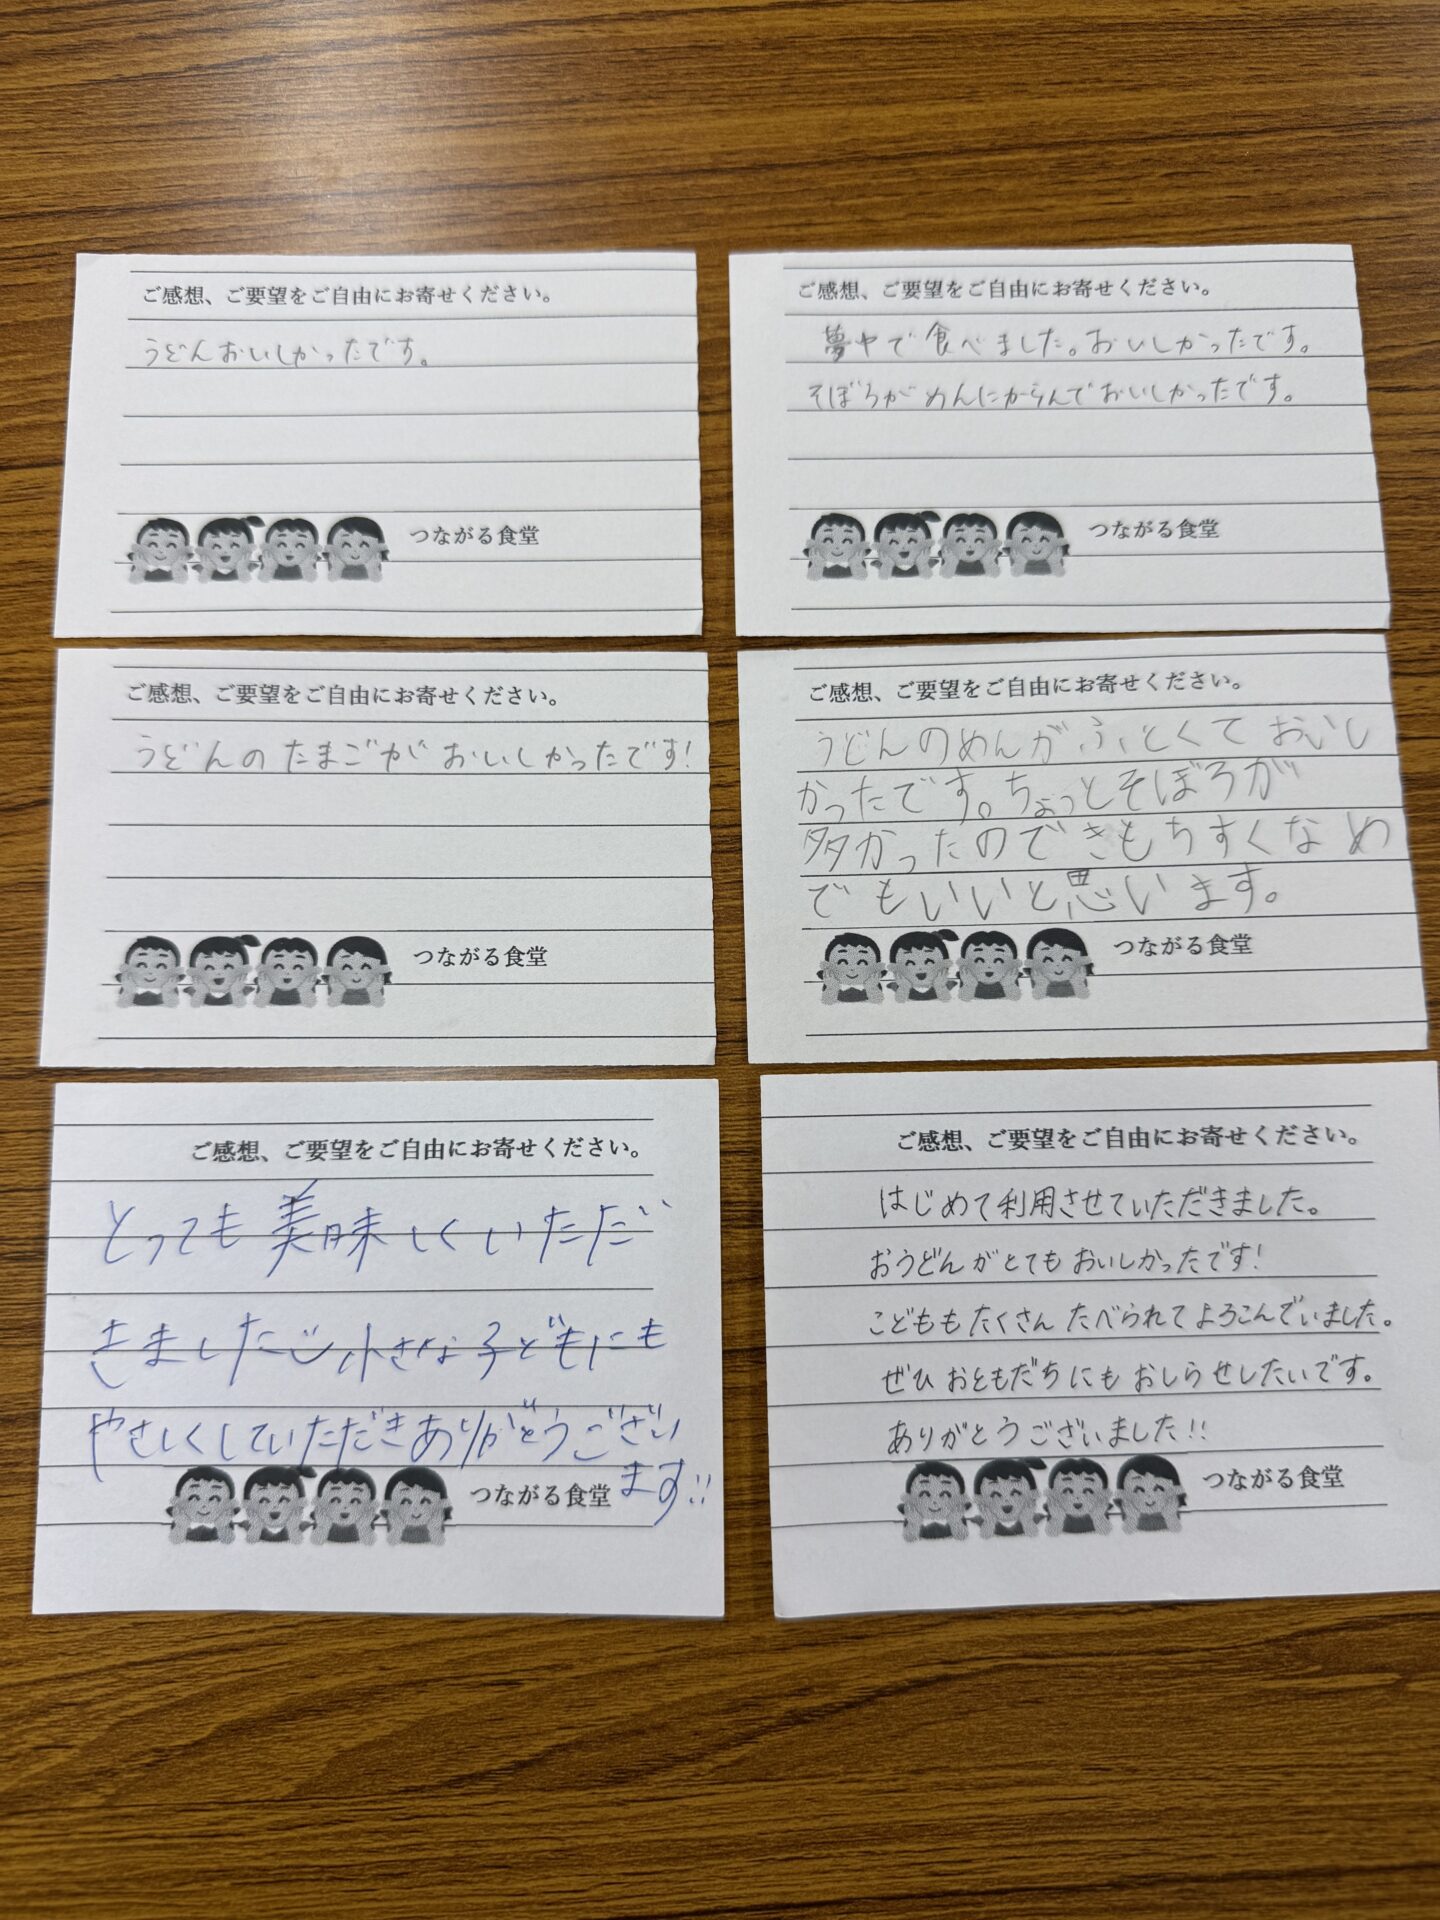 ご感想、ご要望をご自由にお寄せください。
うどんおいしかったです。
つながる食堂
ご感想、ご要望をご自由にお寄せください。
夢中で食べました。おいしかったです。
そぼろがめんにからんでおいしかったです。
つながる食堂
ご感想、ご要望をご自由にお寄せください。
うどんのたまごがおいしかったです!
つながる食堂
ご感想、ご要望をご自由にお寄せください。
うどんのめんがふとくておいし
かったです。ちょっとそぼろが
多かったのできもちすくなめ
でもいいと思います。
つながる食堂
ご感想、ご要望をご自由にお寄せください。
とっても美味しくいただ
きました 小さな子どもにも
やさしくしていただきありがとうござい
ます!!
つながる食堂
ご感想、ご要望をご自由にお寄せください。
はじめて利用させていただきました。
おうどんがとてもおいしかったです!
こどももたくさんたべられてよろこんでいました。
ぜひおともだちにもおしらせしたいです。
ありがとうございました!!
つながる食堂